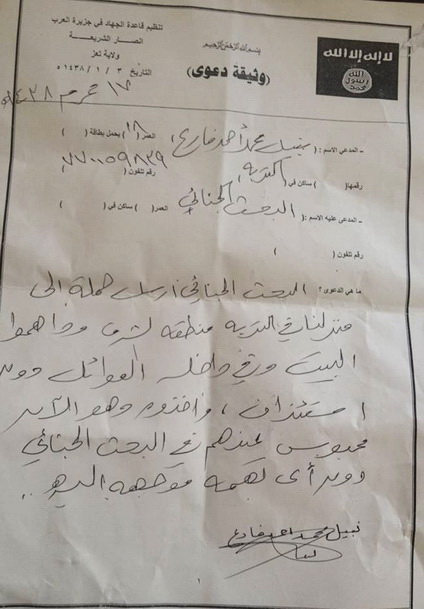 تنظيم قاعدة الجهاد في جزيرة العرب
انصار الشريعة
ولاية تعز
التاريخ ٣ / ١ / ١٤٣٨هـ
١٧ محرم ١٤٣٨هـ
بسم الله الرحمن الرحيم
(وثيقة دعوى)
لا إله إلا الله
الله
رسول
محمد
- المدعي الاسم : ( نبيل محمد أحمد فارع ) العمر( ١٨ ) يحمل بطاقة ( )
رقمها( ) ساكن في( التربه ) رقم تلفون( ٧٧٠٠٥٩٨٣٩
- المدعى عليه الاسم :( البحث الجنائي ) العمر( ) ساكن في ( )
رقم تلفون ( )
ما هي الدعوى؟ البحث الجنائي ارسل حملة الى
منزلنا في التربه منطقه شرف وداهموا
البيت وفي داخله العوائل دون
استئذان ، واخذوه وهو الآن
محبوس عندهم في البحث الجنائي
دون أي تهمه موجهه اليه ..
نبيل محمد احمد فارع
١